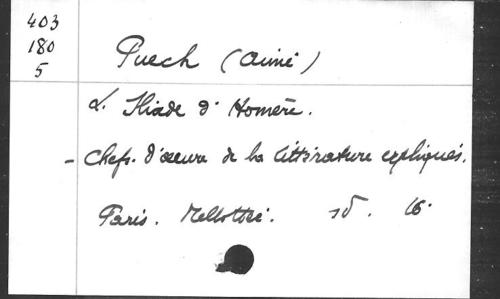 403
180
5
Puech (Aimé)
L'Iliade d'Homère.
- Chefs. d'œuvre de la littérature expliqués.
Paris. Mellottée. sd. 16°